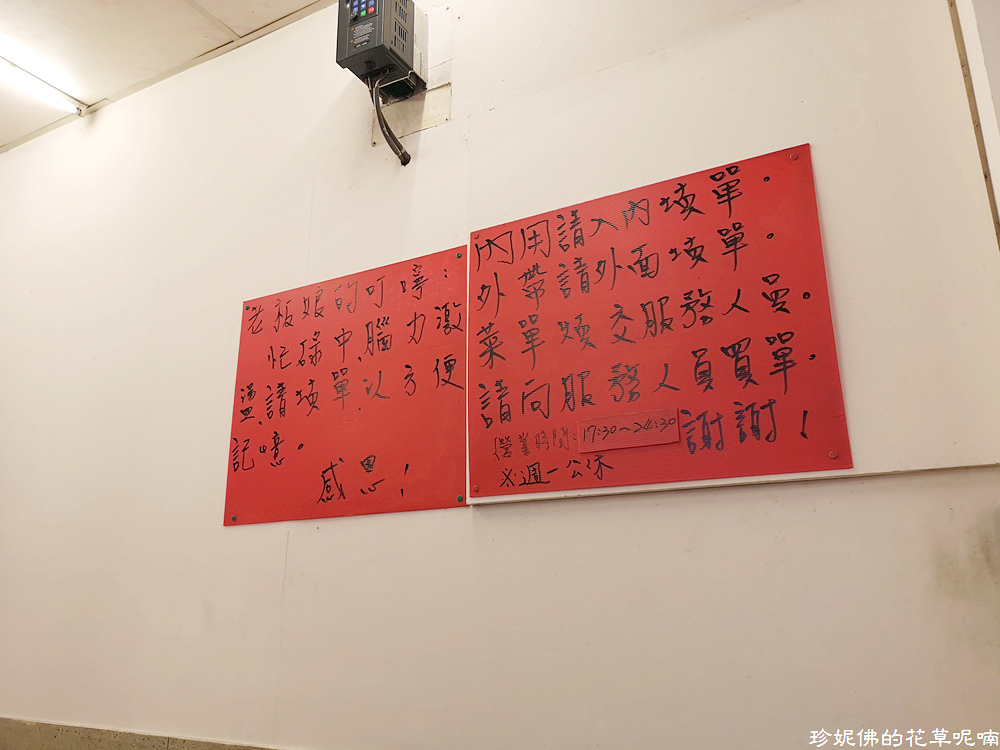 老板娘的叮嚀:
忙碌中,腦力激
盪,請填單,以方便
記憶。
感恩!
內用請入內填單。
外帶請外面填單。
菜單煩交服務人員。
請向服務人員買單。
(營業時間:17:30~24:30 謝謝!
※週一公休
珍妮佛的花草呢喃